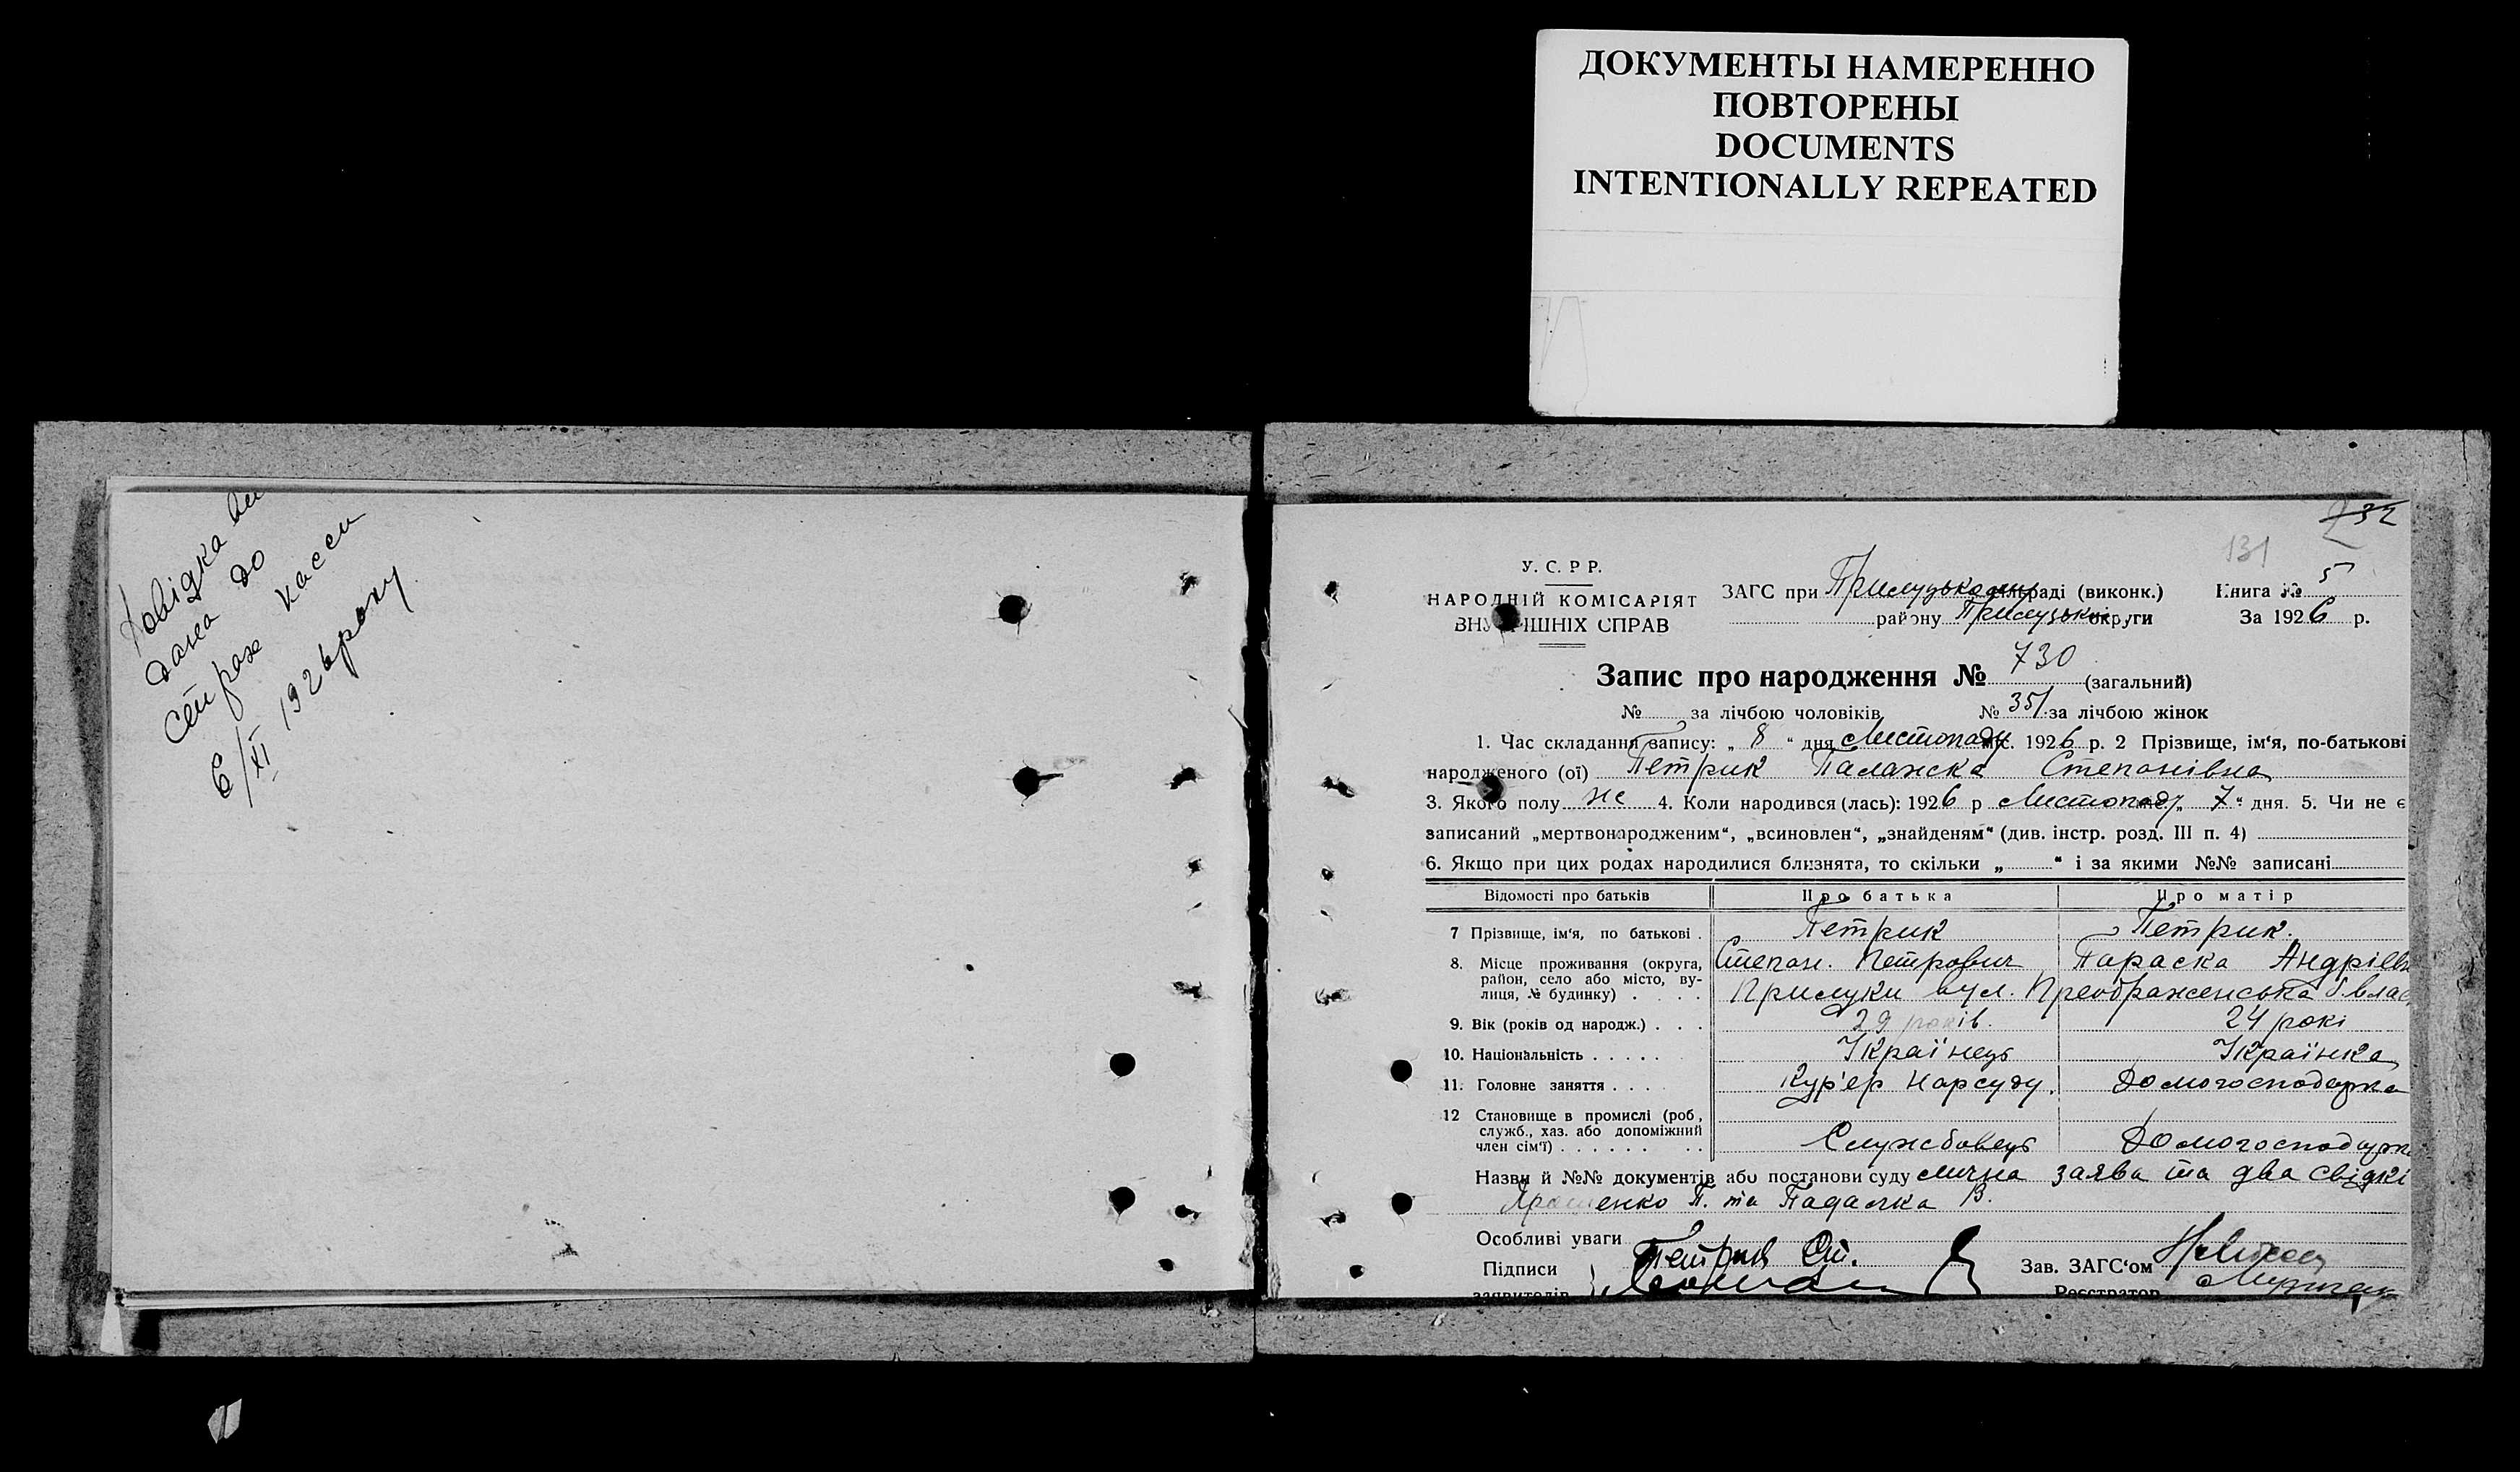 ДОКУМЕНТЫ НАМЕРЕННО
ПОВТОРЕНЫ
DOCUMENTS
INTENTIONALLY REPEATED
Довідка ви
дана до
страх касси
6/XI 1926 року
232
131
У. С. Р Р.
НАРОДНІЙ КОМІСАРІЯТ
ВНУТРІШНІХ СПРАВ
ЗАГС при Прилуцькому раді (виконк.)
району Прилуцької округи
Книга № 5
За 1926 р.
Запис про народження № 730 (загальний)
№ за лічбою чоловіків № 351 за лічбою жінок
1. Час складання запису: „ 8 “ дня Листопаду міс. 1926 р. 2 Прізвище, ім‘я, по-батькові
народженого (ої) Петрик Палажка Степанівна
3. Якого полу жс 4. Коли народився (лась): 1926 р Листопаду „ 7 “ дня. 5. Чи не є
записаний „мертвонародженим“, „всиновлен“, „знайденям“ (див. інстр. розд. III п. 4)
6. Якщо при цих родах народилися близнята, то скільки „ “ і за якими №№ записані
Відомості про батьків Про батька Про матір
7 Прізвище, ім‘я, по батькові . Петрик Петрик.
Степан. Петрович Параска Андрієвн
8. Місце проживання (округа,
район, село або місто, ву-
лиця, № будинку) . . . . Прилуки вул. Преображенська б. влас
9. Вік (років од народж.) . . . 29 років. 24 рокі
10. Національність . . . . . Українець Українка
11. Головне заняття . . . . Кур'ер Нарсуду. Домогосподарка
12 Становище в промислі (роб,
служб., хаз. або допоміжний
член сім‘ї) . . . . . . . . Службовець Домогосподарка
Назви й №№ документів або постанови суду лична заява та два свідкі
П. та Падалка В.
Особливі уваги
Підписи Петрик Ст.
заявителів
Зав. ЗАГС‘ом
Реєстратор